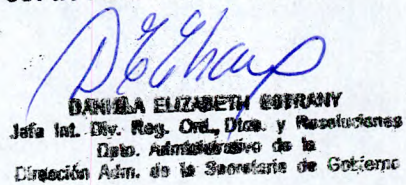 DANIELA ELIZABETH ESTRANY
Jefa Int. Div. Reg. Ord., Dtos. y Resoluciones
Dpto. Administrativo de la
Dirección Adm. de la Secretaria de Gobierno